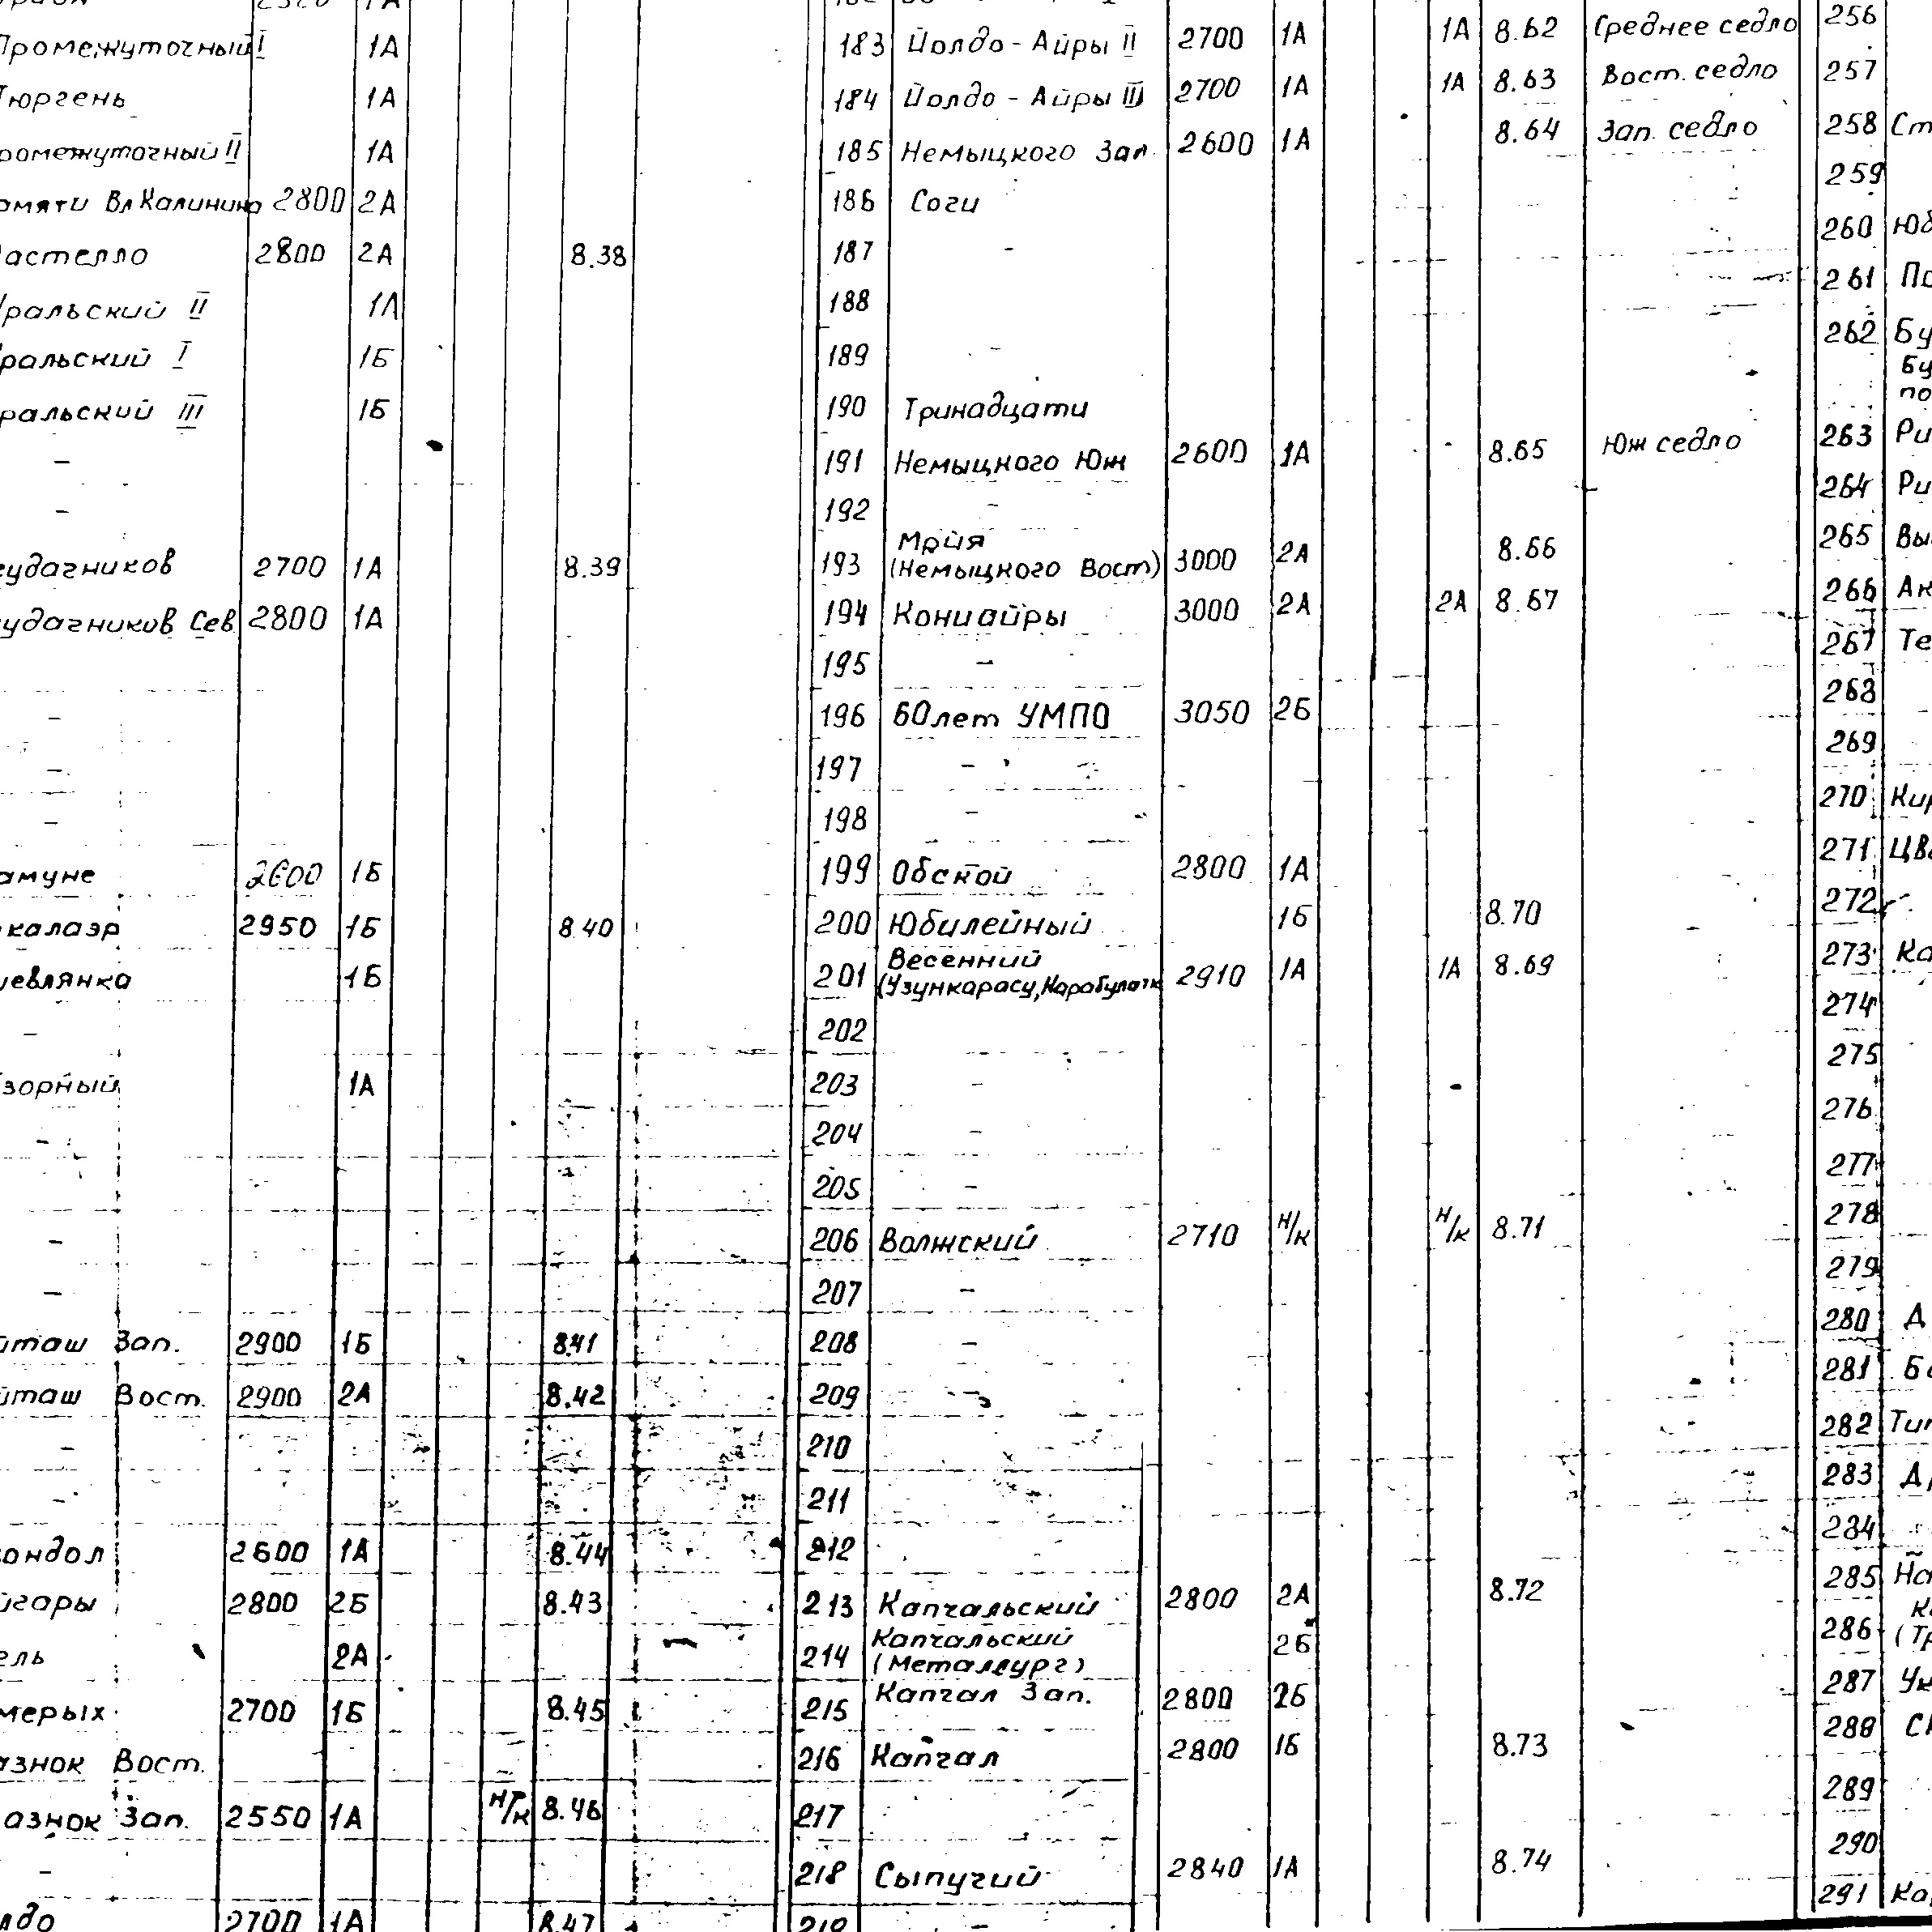 Промежуточный I 1А
Тюргень 1А
ромежуточный II 1А
амяти Вл Калинина 2800 2А
астелло 2800 2А 8.38
Уральский II 1А
ральский I 1Б
ральский III 1Б
–
–
еудачников 2700 1А 8.39
удачников Сев 2800 1А
–
–
–
амуне 2600 1Б
калаэр 2950 1Б 8.40
иевлянка 1Б
–
зорный 1А
–
–
–
йташ Зап. 2900 1Б 8.41
йташ Вост. 2900 2А 8.42
–
–
ондол 2600 1А 8.44
йгары 2800 2Б 8.43
ель 2А
мерых 2700 1Б 8.45
азнок Вост.
азнок Зап. 2550 1А н/к 8.46
–
лдо 2700 1А 8.47
183 Йолдо-Айры II 2700 1А 1А 8.62 Среднее седло
184 Йолдо-Айры III 2700 1А 1А 8.63 Вост. седло
185 Немыцкого Зап. 2600 1А 8.64 Зап. седло
186 Соги
187 –
188
189 –
190 Тринадцати
191 Немыцкого Юж 2600 1А 8.65 Юж седло
192 –
Майя
193 (Немыцкого Вост) 3000 2А 8.66
194 Кониайры 3000 2А 2А 8.67
195 –
196 60лет УМПО 3050 2Б
197 –
198 –
199 Обской 2800 1А
200 Юбилейный 1Б 8.70
Весенний
201 (Узункарасу, Карабулак 2910 1А 1А 8.69
202
203 –
204 –
205 –
206 Волжский 2710 н/к н/к 8.71
207 –
208 –
209 –
210
211
212
213 Капчальский 2800 2А 8.72
Капчальский
214 (Металлург) 2Б
215 Капчал Зап. 2800 2Б
216 Капчал 2800 1Б 8.73
217
218 Сыпучий 2840 1А 8.74
219 –
256
257
258 Ст
259
260 Юб
261 По
262 Бу
Бу
по
263 Ри
264 Ри
265 Вы
266 Ак
267 Те
268
269
270 Кир
271 Цве
272
273 Ка
274
275
276
277
278
279
280 Д
281 Ба
282 Тип
283 Др
284
285 На
Ка
286 (Тр
287 Ук
288 Сн
289
290
291 Ка